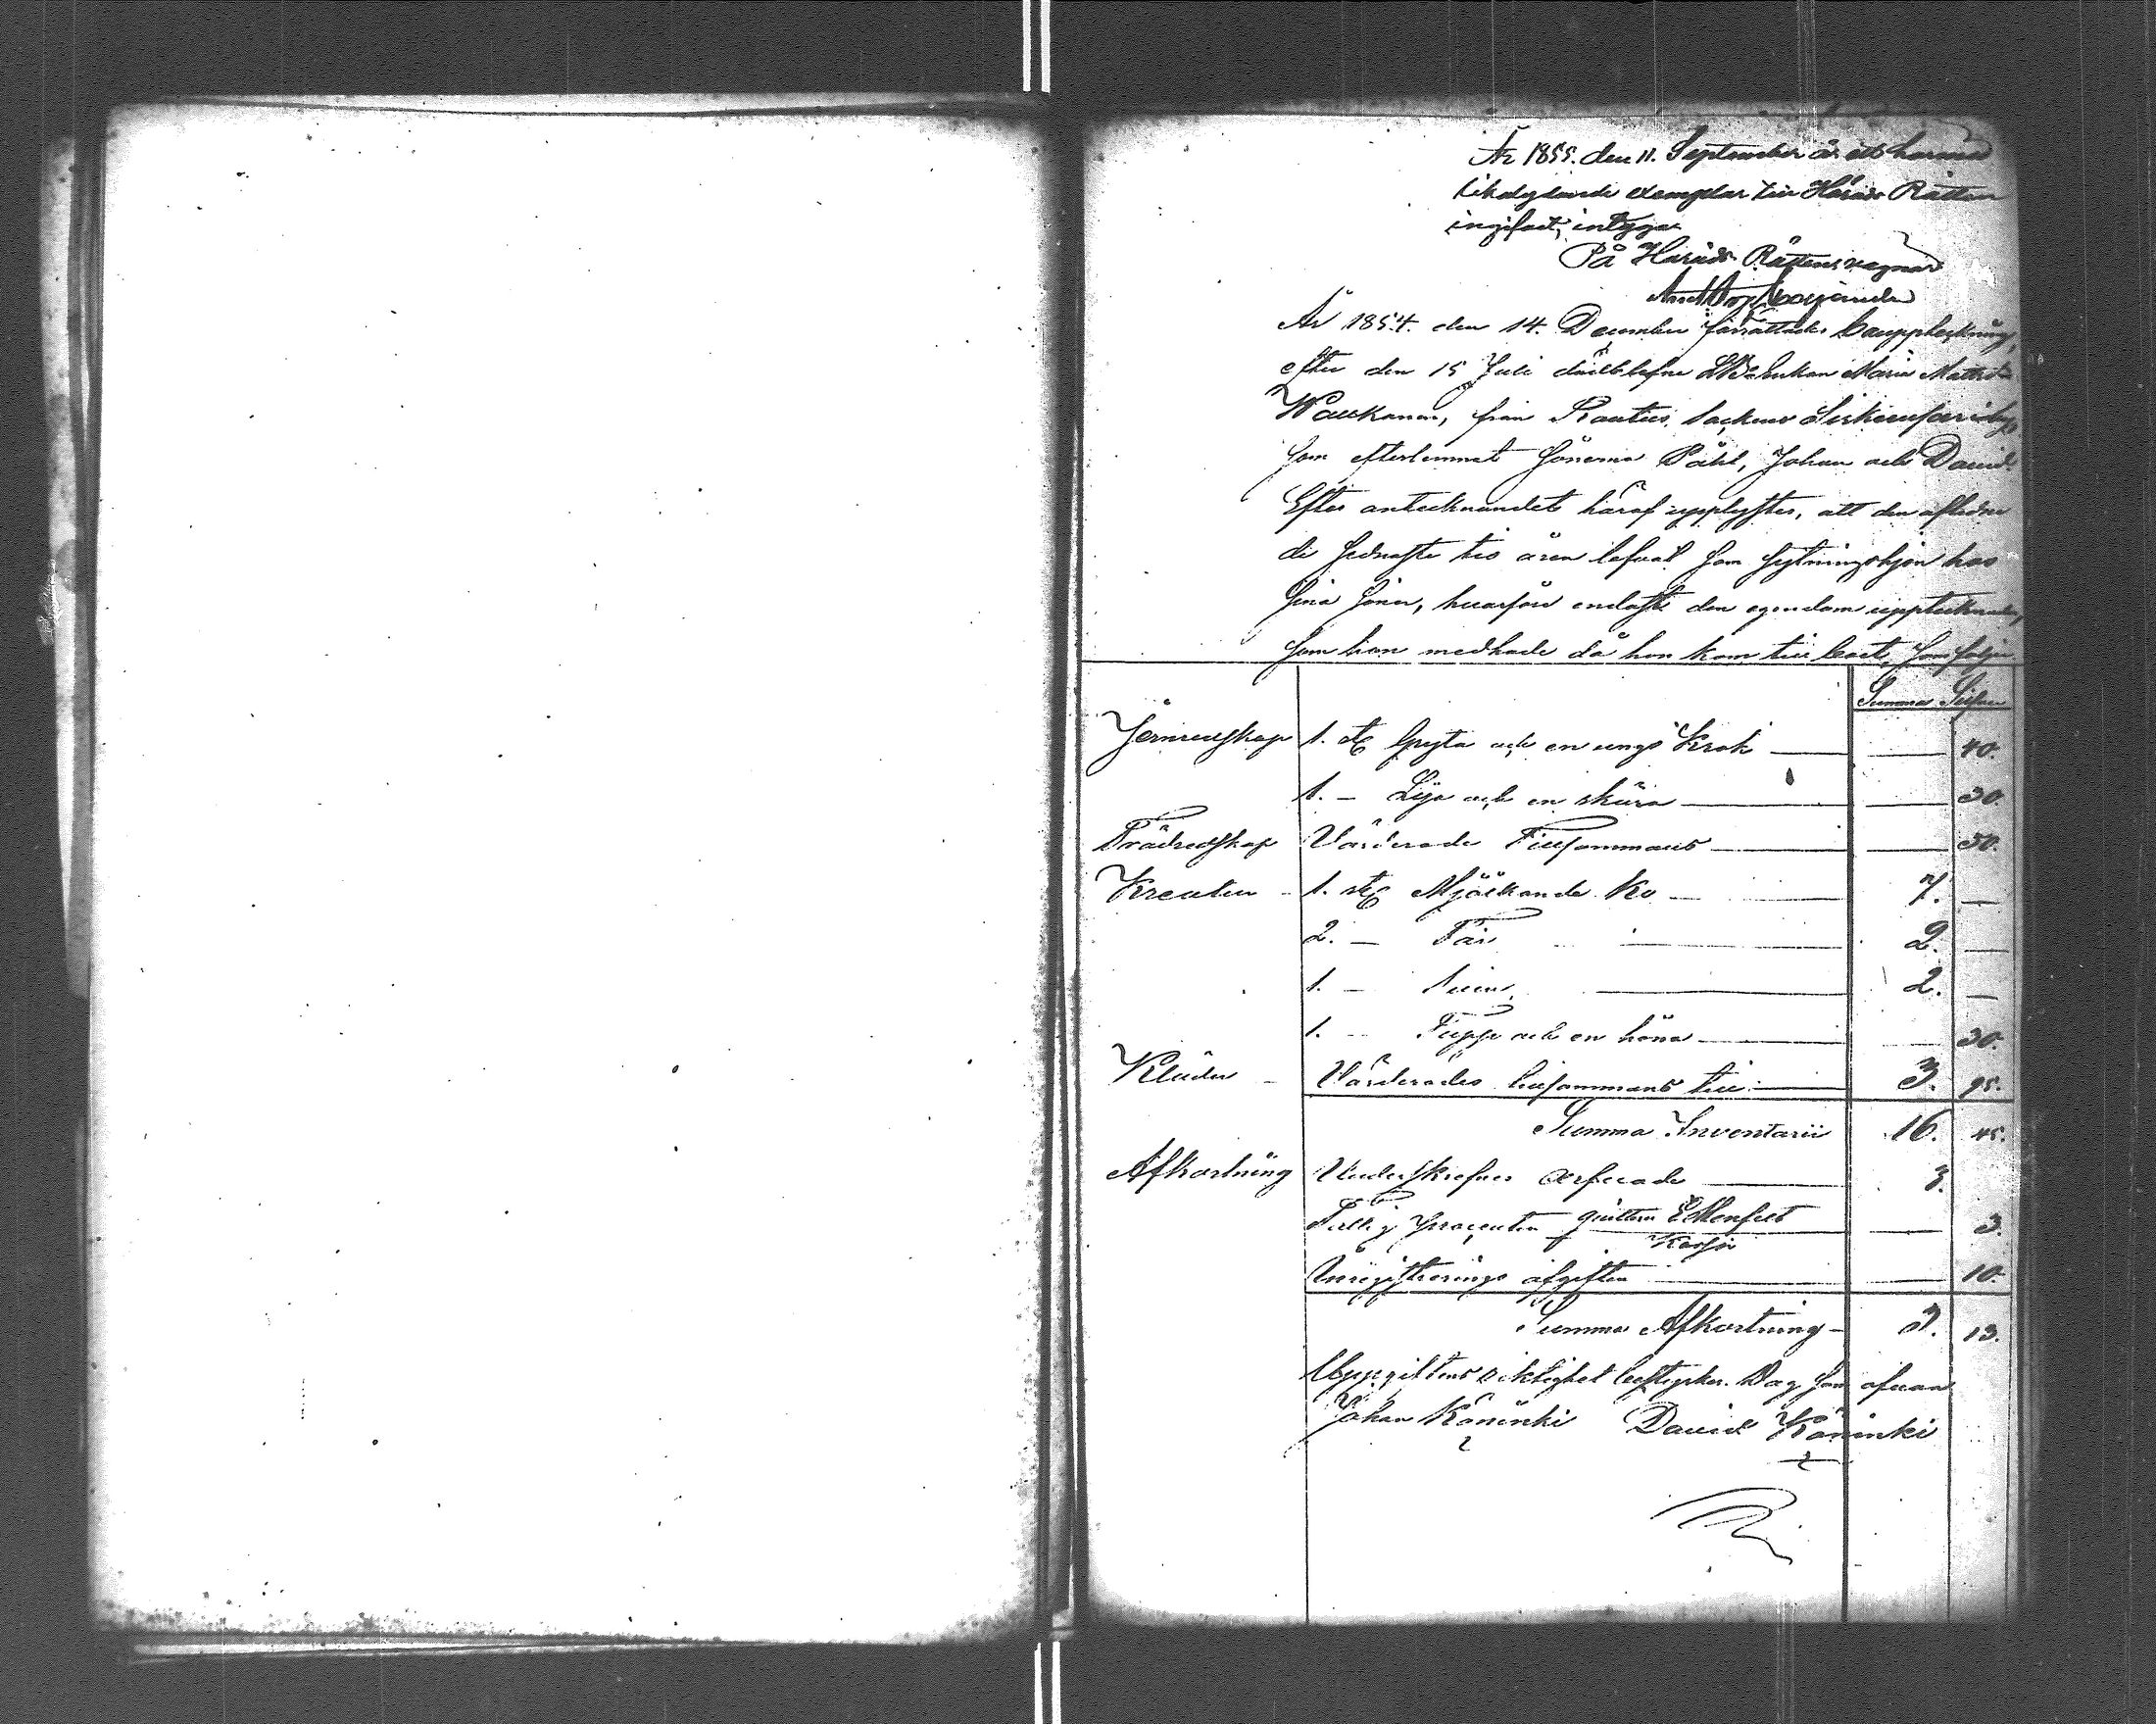 År 1855. den 11. September är ett härmed
likalydande exemplar till Härads Rätten
ingifvet, intygar
På Härads Rättens vägnar
År 1854. den 14. December förrättades bouppteckning,
efter den 15 Juli dödblefne Enkan Maria Mattsd:r
Waukonen, från Rautus Sockens by,
som efterlemnat Sönerna Påhl, Johan och David.
Efter antecknandet häraf upplystes, att den aflidne
de sednaste tio åren lefvat som sytningshjon hos
sina söner, hvarföre endast den egendom upptecknades,
som hon medhade då hon kom till boet, som följer
Summa Silfver
Jernredskap 1. st Gryta och en ungs Krok 40.
1. - Lija och en skära 30.
Trädredskap Värderade Tillsammans 50.
Kreatur 1. st Mjölkande Ko 7. —
2. — Får 2. —
1. — Svin 2. —
1. — Tupp och en höna 30.
Kläder Värderades tillsammans till 3. 95.
Summa Inventarii 16. 45.
Afkortning Underskrefnes arfvode 3.
Fattig procenten 3.
Inregistrerings afgiften 10.
Summa Afkortning 3. 13.
Uppgiftens riktighet bestyrkes. Dag som ofvan
Johan Köninki David Köninki